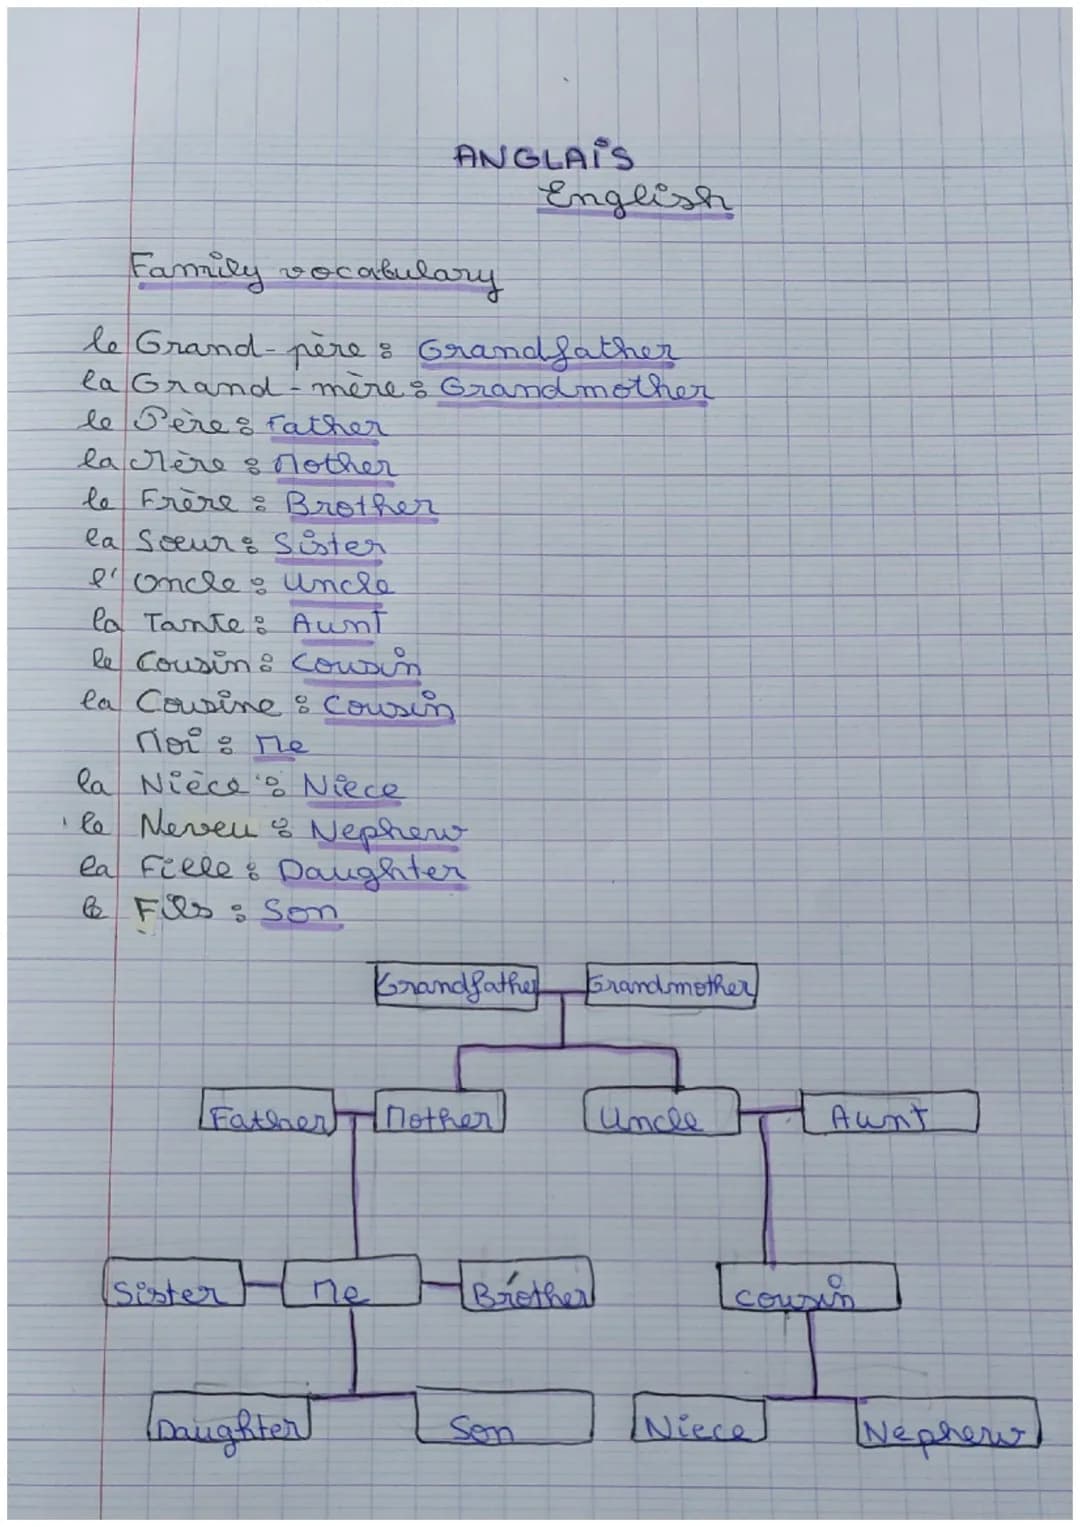 ANGLAIS
English
Family vocabulary
le Grand-père : Grandfather
la Grand-mère : Grandmother
le Père : Father
la Mère : Mother
le Frère : Brother
la Soeur : Sister
l'oncle : Uncle
la Tante : Aunt
le Cousin : Cousin
la Cousine : Cousin
Moi : Me
la Nièce : Niece
le Neveu : Nephew
la Fille : Daughter
le Fils : Son
Grandfather Grandmother
Father Mother Uncle Aunt
Sister Me Brother cousin
Daughter Son Niece Nephew